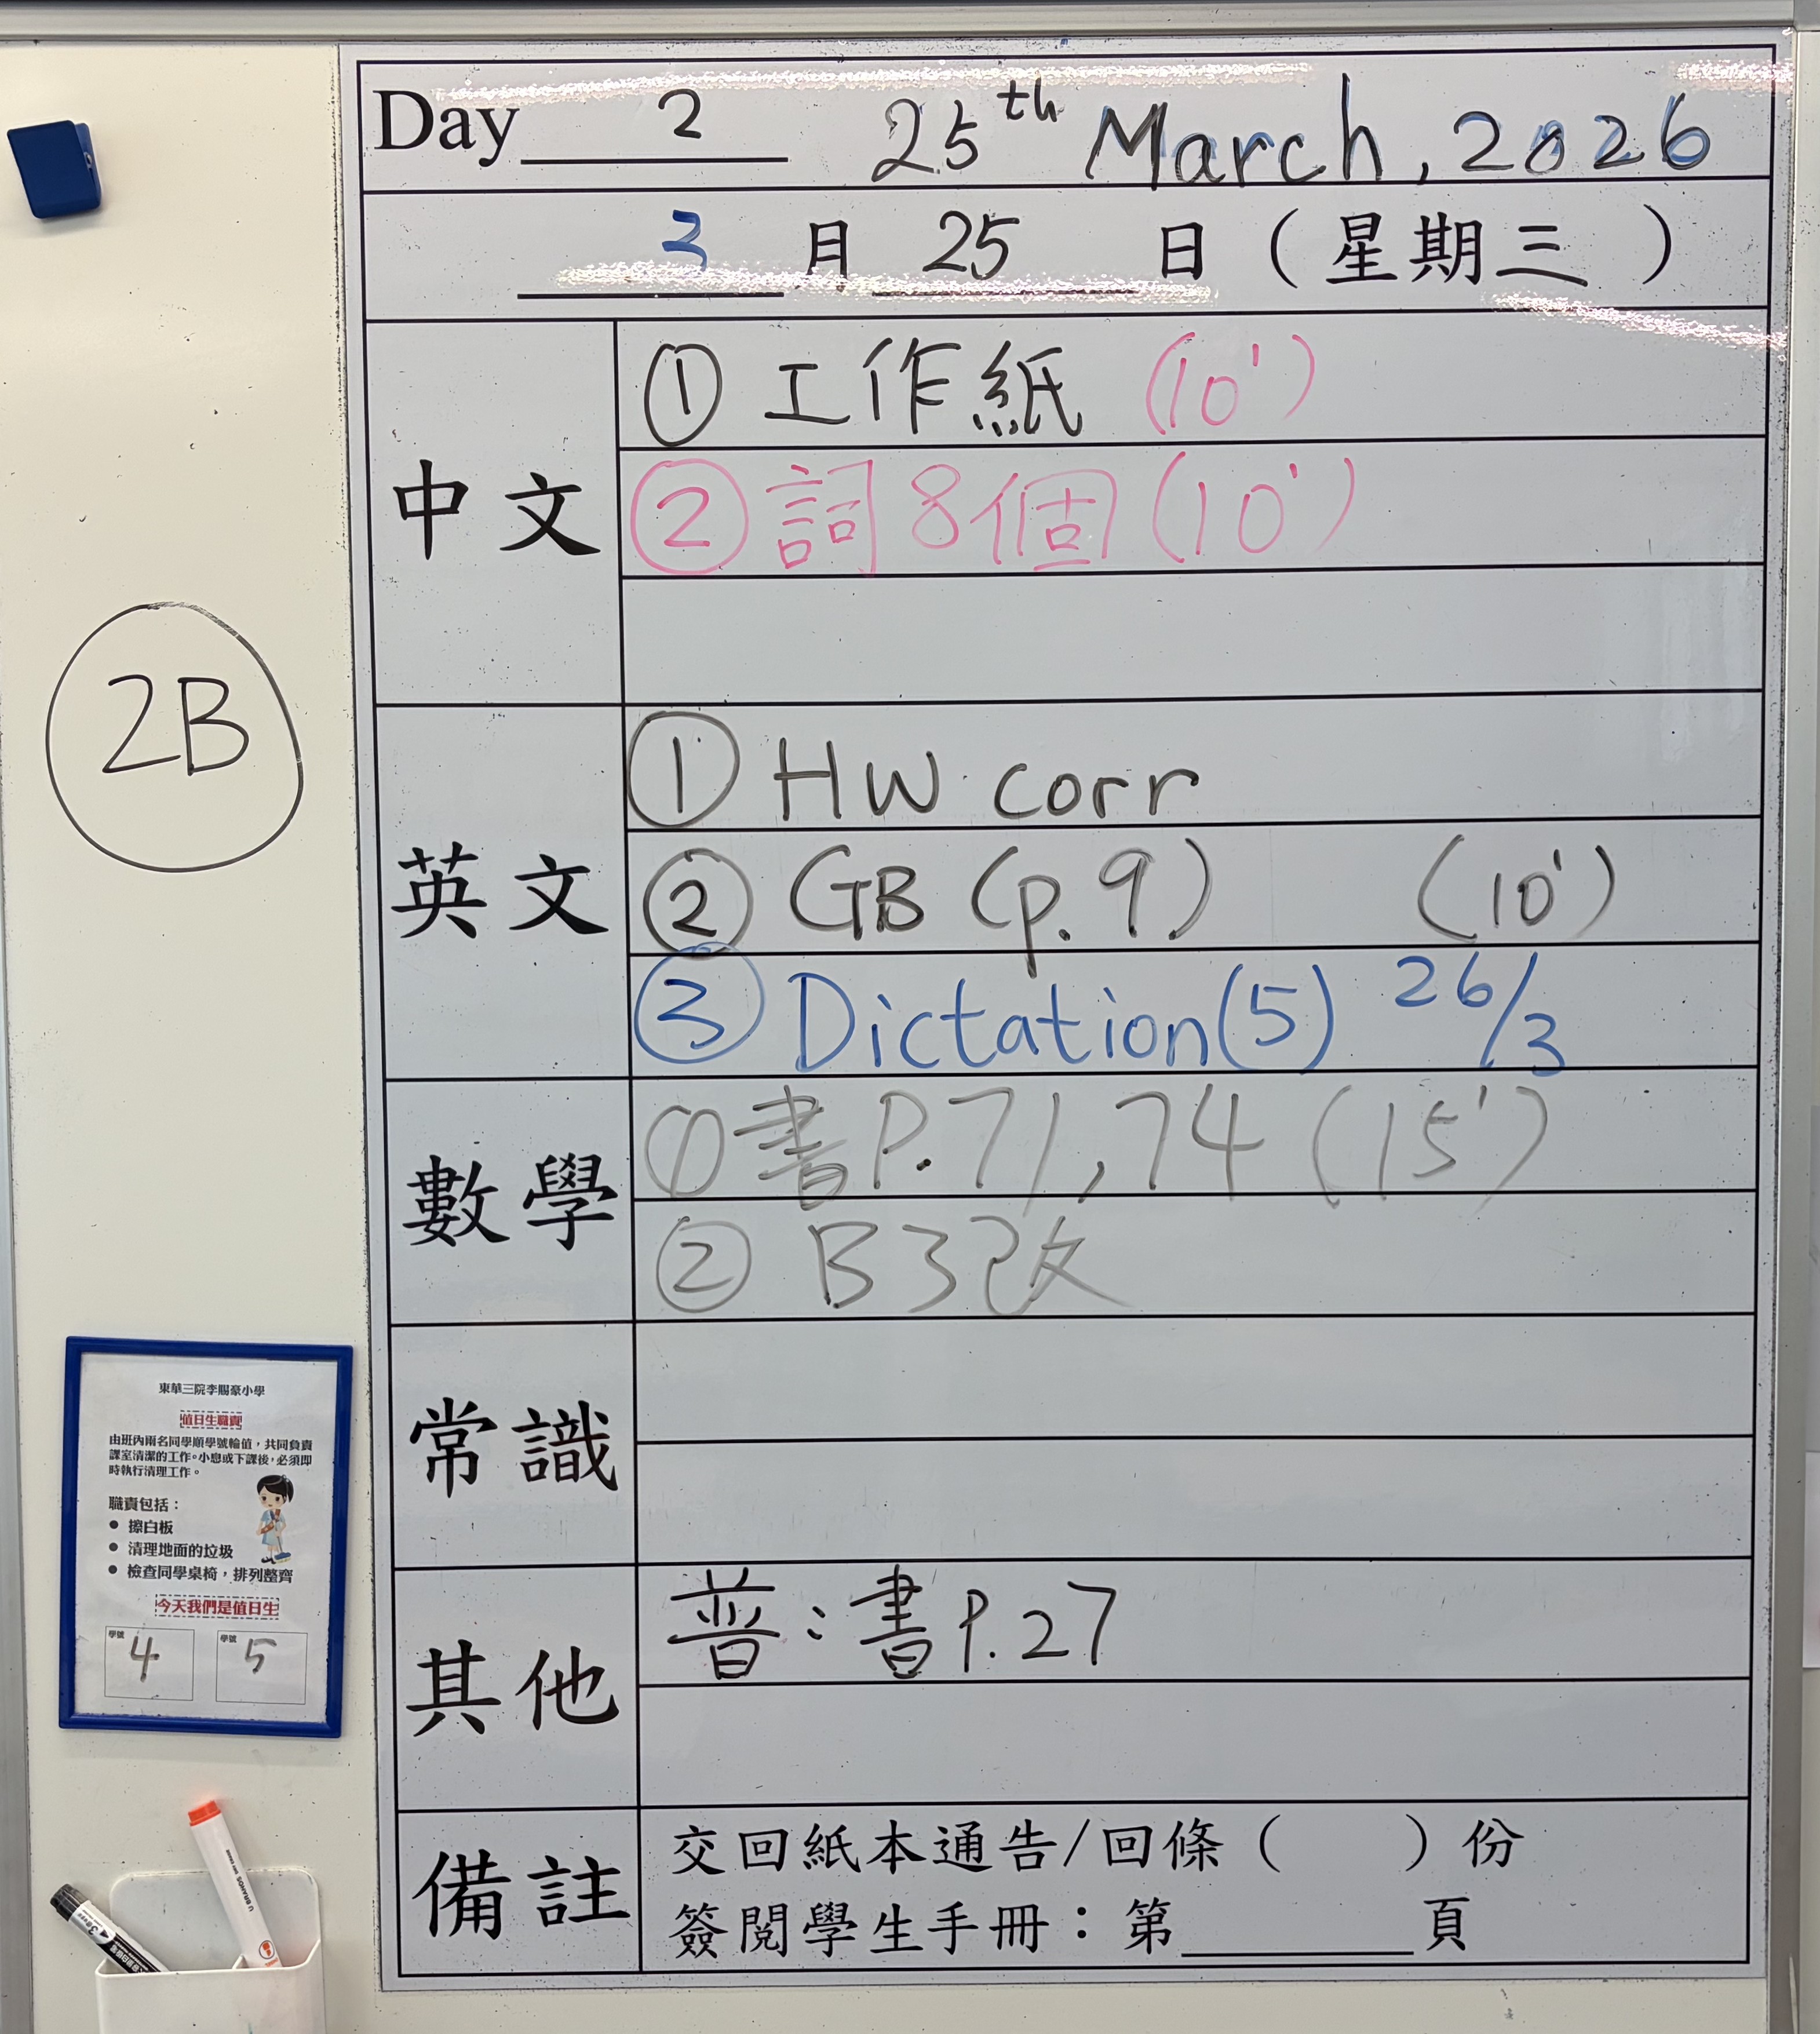 Day 2 25th March, 2026
3 月 25 日 ( 星期三 )
中文
① 工作紙 (10')
② 詞8個 (10')
英文
① HW corr
② GB (p. 9) (10')
③ Dictation(5) 26/3
數學
① 書P.71, 74 (15')
② B3改
常識
其他
普：書P.27
備註
交回紙本通告/回條 ( ) 份
簽閱學生手冊：第______頁
2B
東華三院李賜豪小學
值日生職責
由班內兩名同學順學號輪值，共同負責
課室清潔的工作。小息或下課後，必須即
時執行清理工作。
職責包括：
● 擦白板
● 清理地面的垃圾
● 檢查同學桌椅，排列整齊
今天我們是值日生
學號 4 學號 5